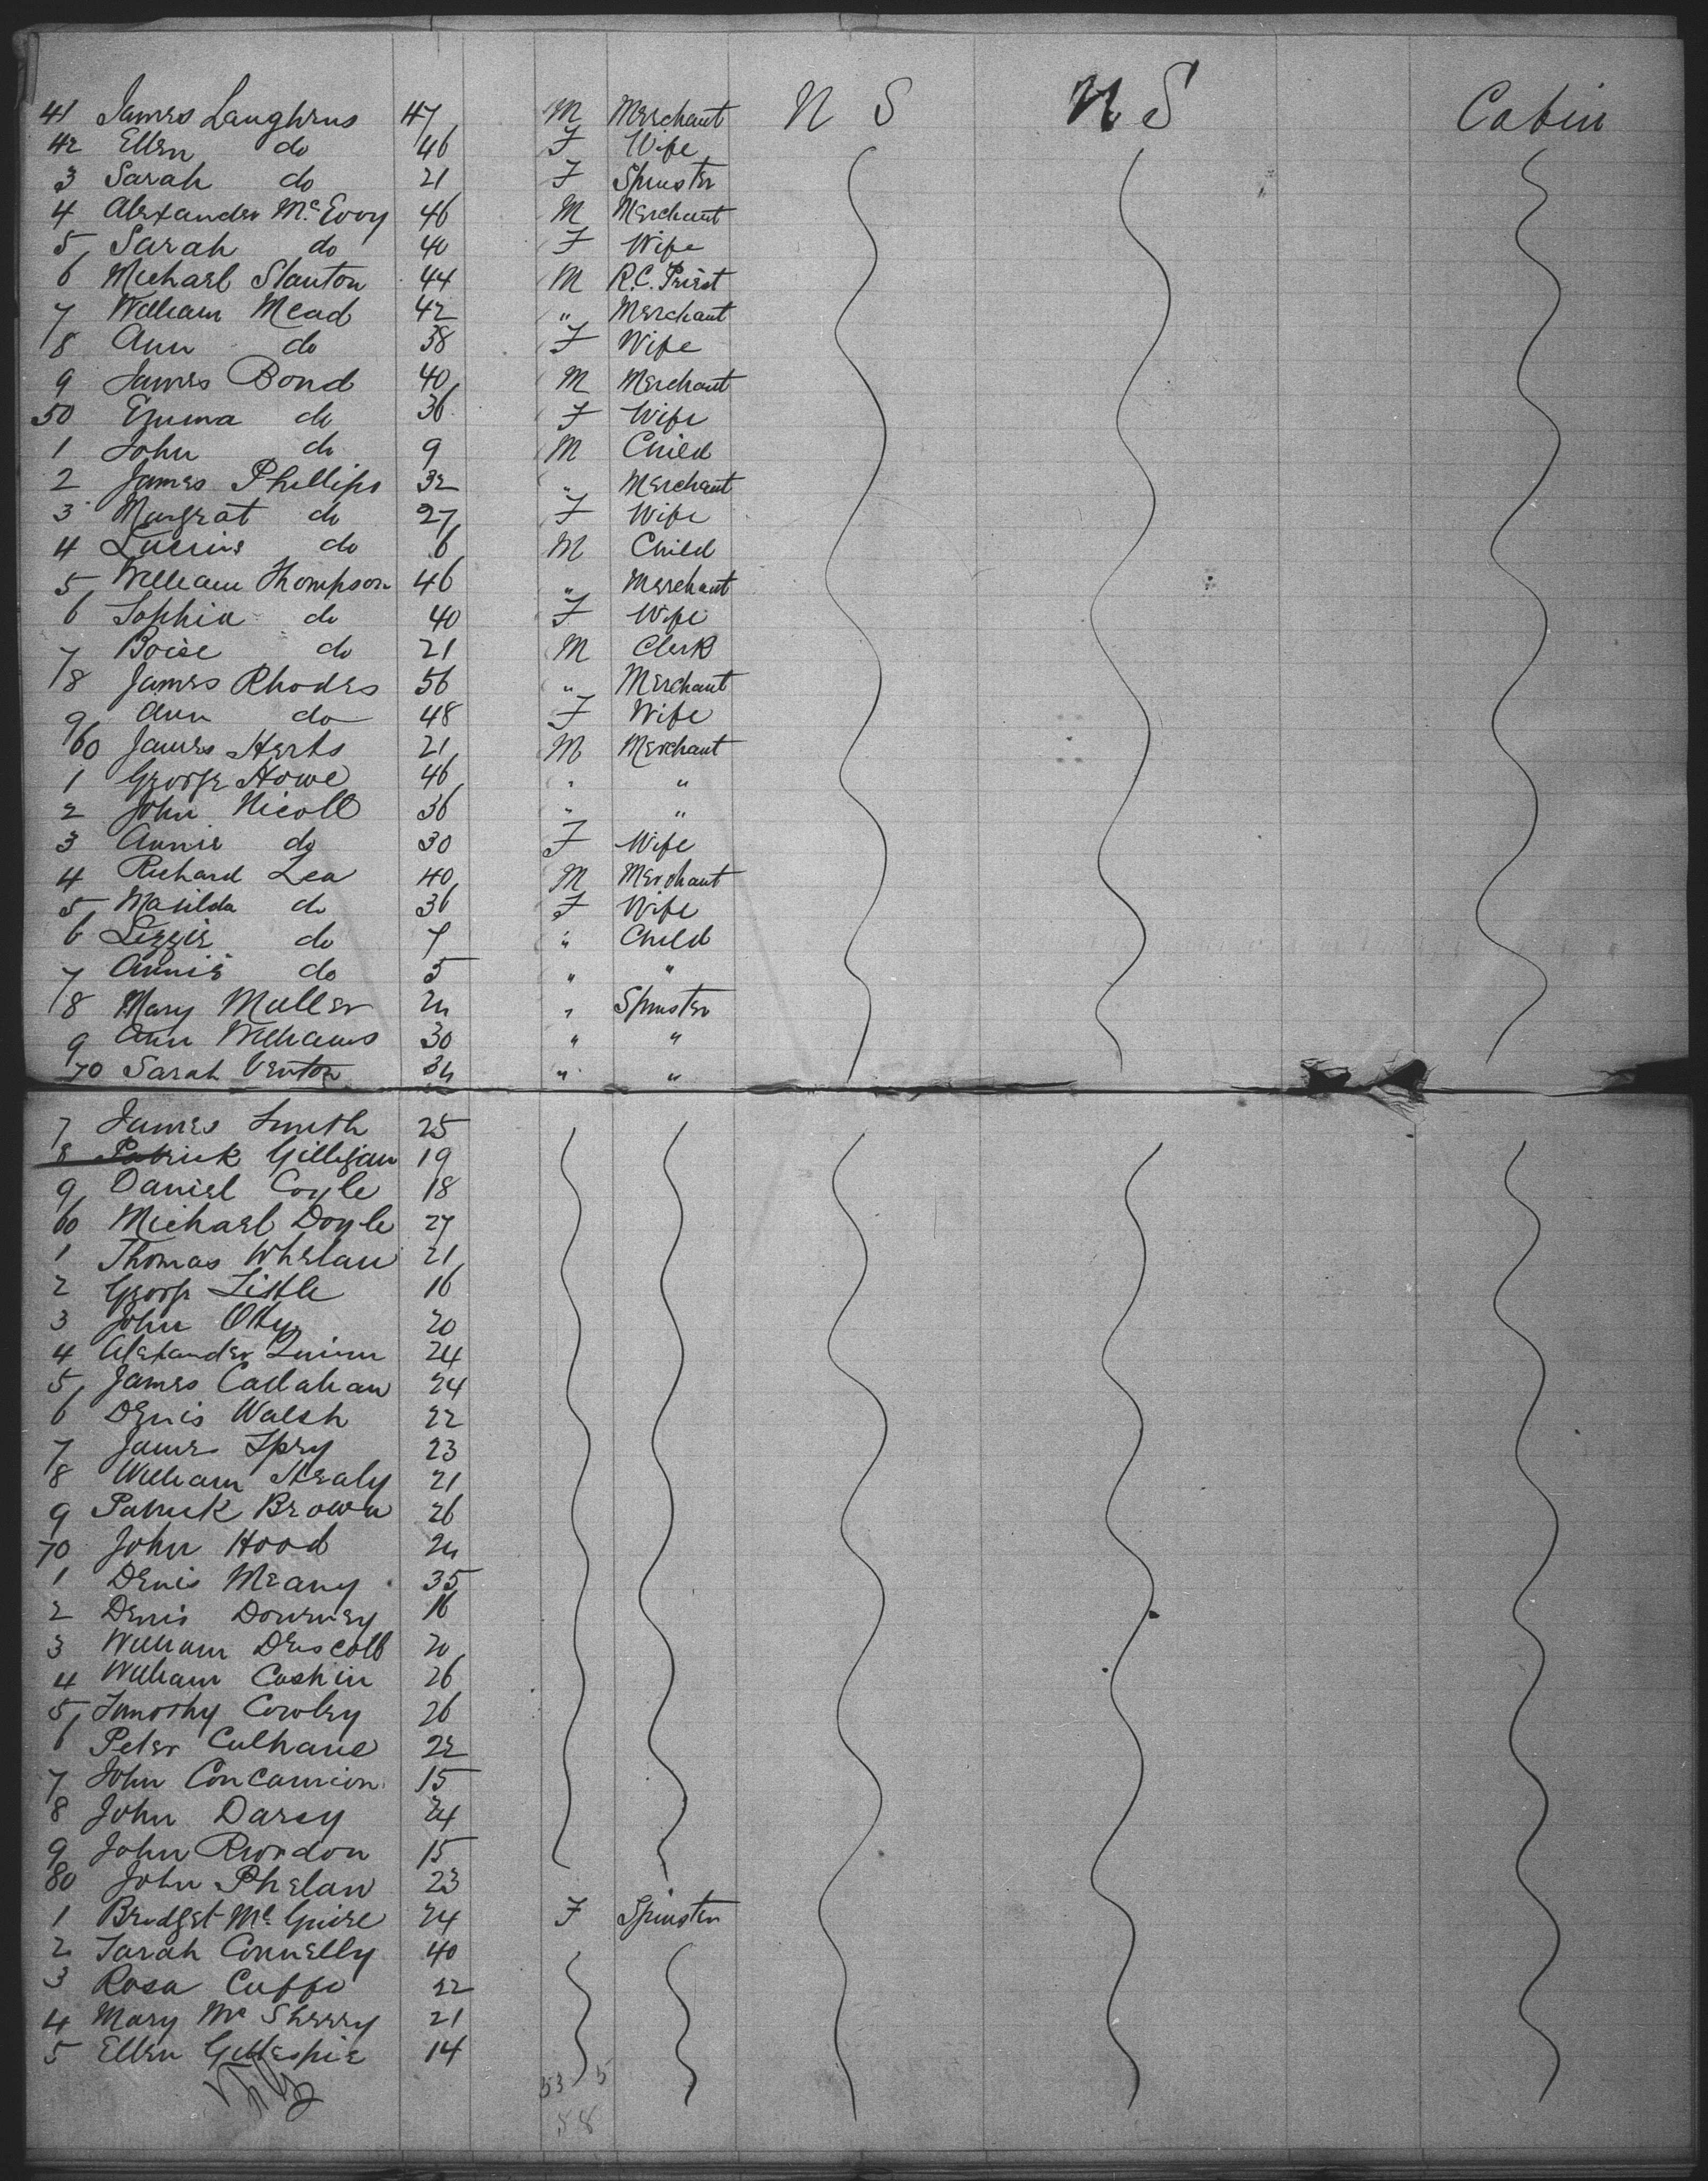 41 James Laughrus 47 M Merchant N S N S Cabin
42 Ellen do 46 F Wife
3 Sarah do 21 F Spinster
4 Alexander Mc Evoy 46 M Merchant
5 Sarah do 40 F Wife
6 Michael Stanton 44 M R.C. Priest
7 William Mead 42 " Merchant
8 Ann do 38 F Wife
9 James Bond 40 M Merchant
50 Emma do 36 F Wife
1 John do 9 M Child
2 James Phillips 32 " Merchant
3 Margrat do 27 F Wife
4 do 6 M Child
5 William Thompson 46 " Merchant
6 Sophia do 40 F Wife
7 Boise do 21 M Clerk
8 James Rhodes 56 " Merchant
9 Ann do 48 F Wife
60 James Herts 21 M Merchant
1 George Howe 46 " "
2 John Nicoll 36 " "
3 Annie do 30 F Wife
4 Richard Lea 40 M Merchant
5 Matilda do 36 F Wife
6 Lizzie do 7 " Child
7 Annie do 5 " "
8 Mary Muller 24 " Spinster
9 Ann Williams 30 " "
70 Sarah Venton 34 " "
7 James Smith 25
8 Patrick Gilligan 19
9 Daniel Coyle 18
60 Michael Doyle 27
1 Thomas Whelan 21
2 George Little 16
3 John 20
4 Alexander Quinn 24
5 James Callahan 24
6 Denis Walsh 22
7 James Spry 23
8 William Healy 21
9 Patrick Brown 26
70 John Hood 24
1 Denis Meany 35
2 Denis Downey 16
3 William Driscoll 20
4 William Cashin 26
5 Timothy Cowley 26
6 Peter Culhane 22
7 John Concannon 15
8 John Darcy 24
9 John Riordon 15
80 John Phelan 23
1 Bridget Mc Guire 24 F Spinster
2 Sarah Connelly 40
3 Rosa Cuffe 22
4 Mary Mc Sherry 21
5 Ellen Gillespie 14
53 5
58